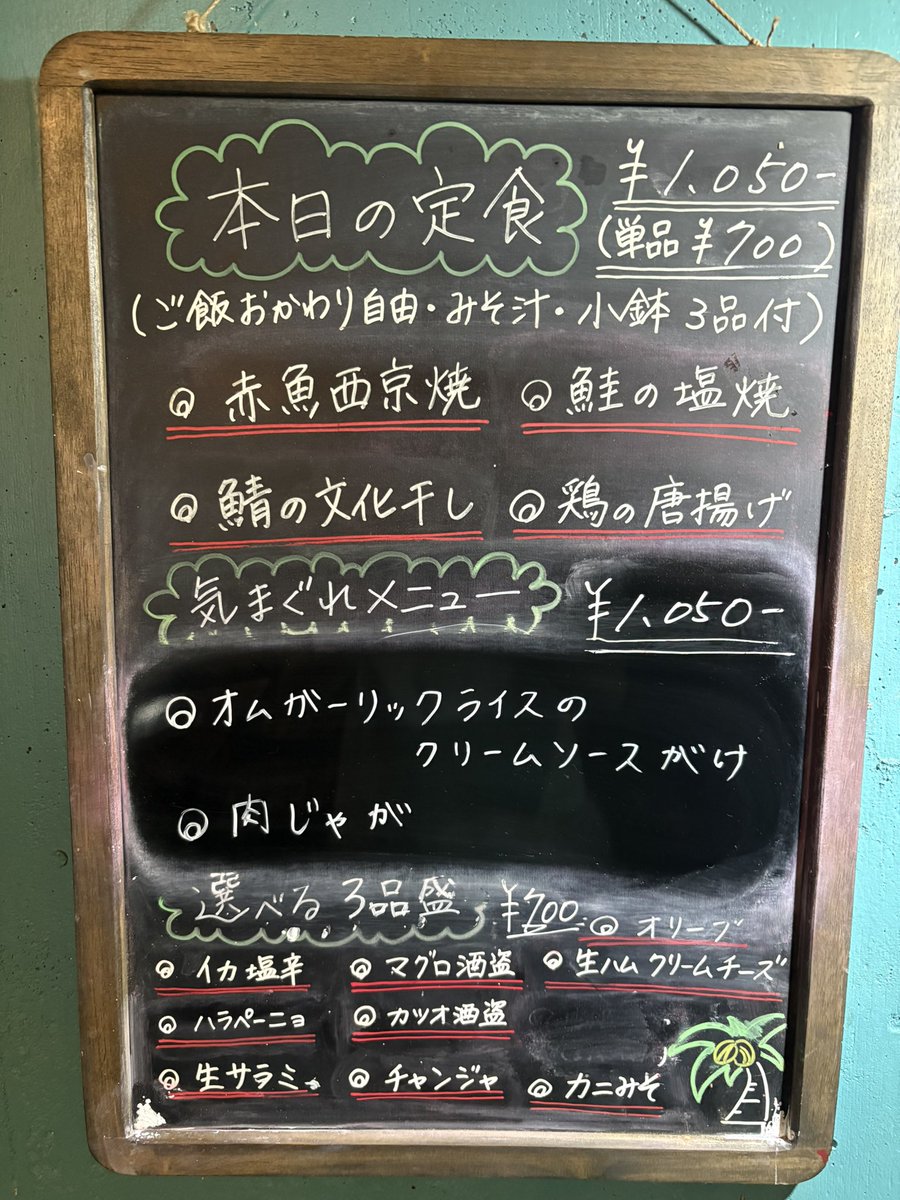 本日の定食 ¥1.050-
(単品¥700)
(ご飯おかわり自由・みそ汁・小鉢3品付)
◎ 赤魚西京焼 ◎ 鮭の塩焼
◎ 鯖の文化干し ◎ 鶏の唐揚げ
気まぐれメニュー ¥1.050-
◎ オムガーリックライスの
クリームソースがけ
◎ 肉じゃが
選べる3品盛 ¥700 ◎ オリーブ
◎ イカ塩辛 ◎ マグロ酒盗 ◎ 生ハムクリームチーズ
◎ ハラペーニョ ◎ カツオ酒盗
◎ 生サラミ ◎ チャンジャ ◎ カニみそ